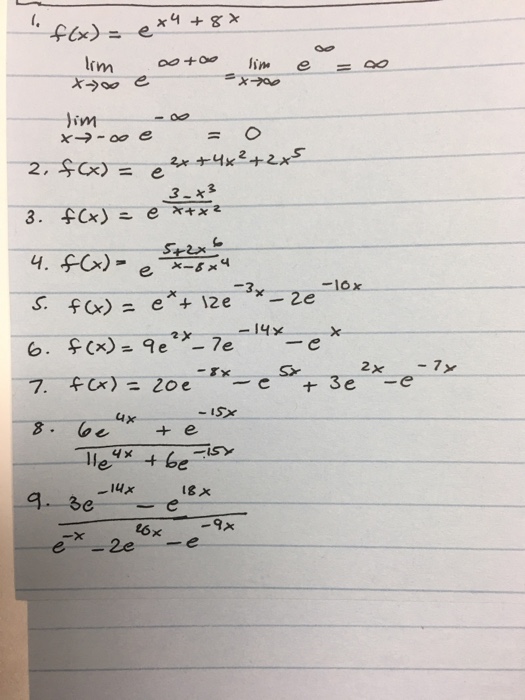 1. f(x) = e^{x^4 + 8x}
lim_{x→∞} e^{∞+∞} = lim_{x→∞} e^∞ = ∞
lim_{x→-∞} e^{-∞} = 0
2, f(x) = e^{2x + 4x^2 + 2x^5}
3. f(x) = e^{\frac{3-x^3}{x+x^2}}
4. f(x) = e^{\frac{5+2x^6}{x-8x^4}}
5. f(x) = e^x + 12e^{-3x} - 2e^{-10x}
6. f(x) = 9e^{2x} - 7e^{-14x} - e^x
7. f(x) = 20e^{-8x} - e^{5x} + 3e^{2x} - e^{-7x}
8. \frac{6e^{4x} + e^{-15x}}{11e^{4x} + 6e^{-15x}}
9. \frac{3e^{-14x} - e^{18x}}{e^{-x} - 2e^{20x} - e^{-9x}}